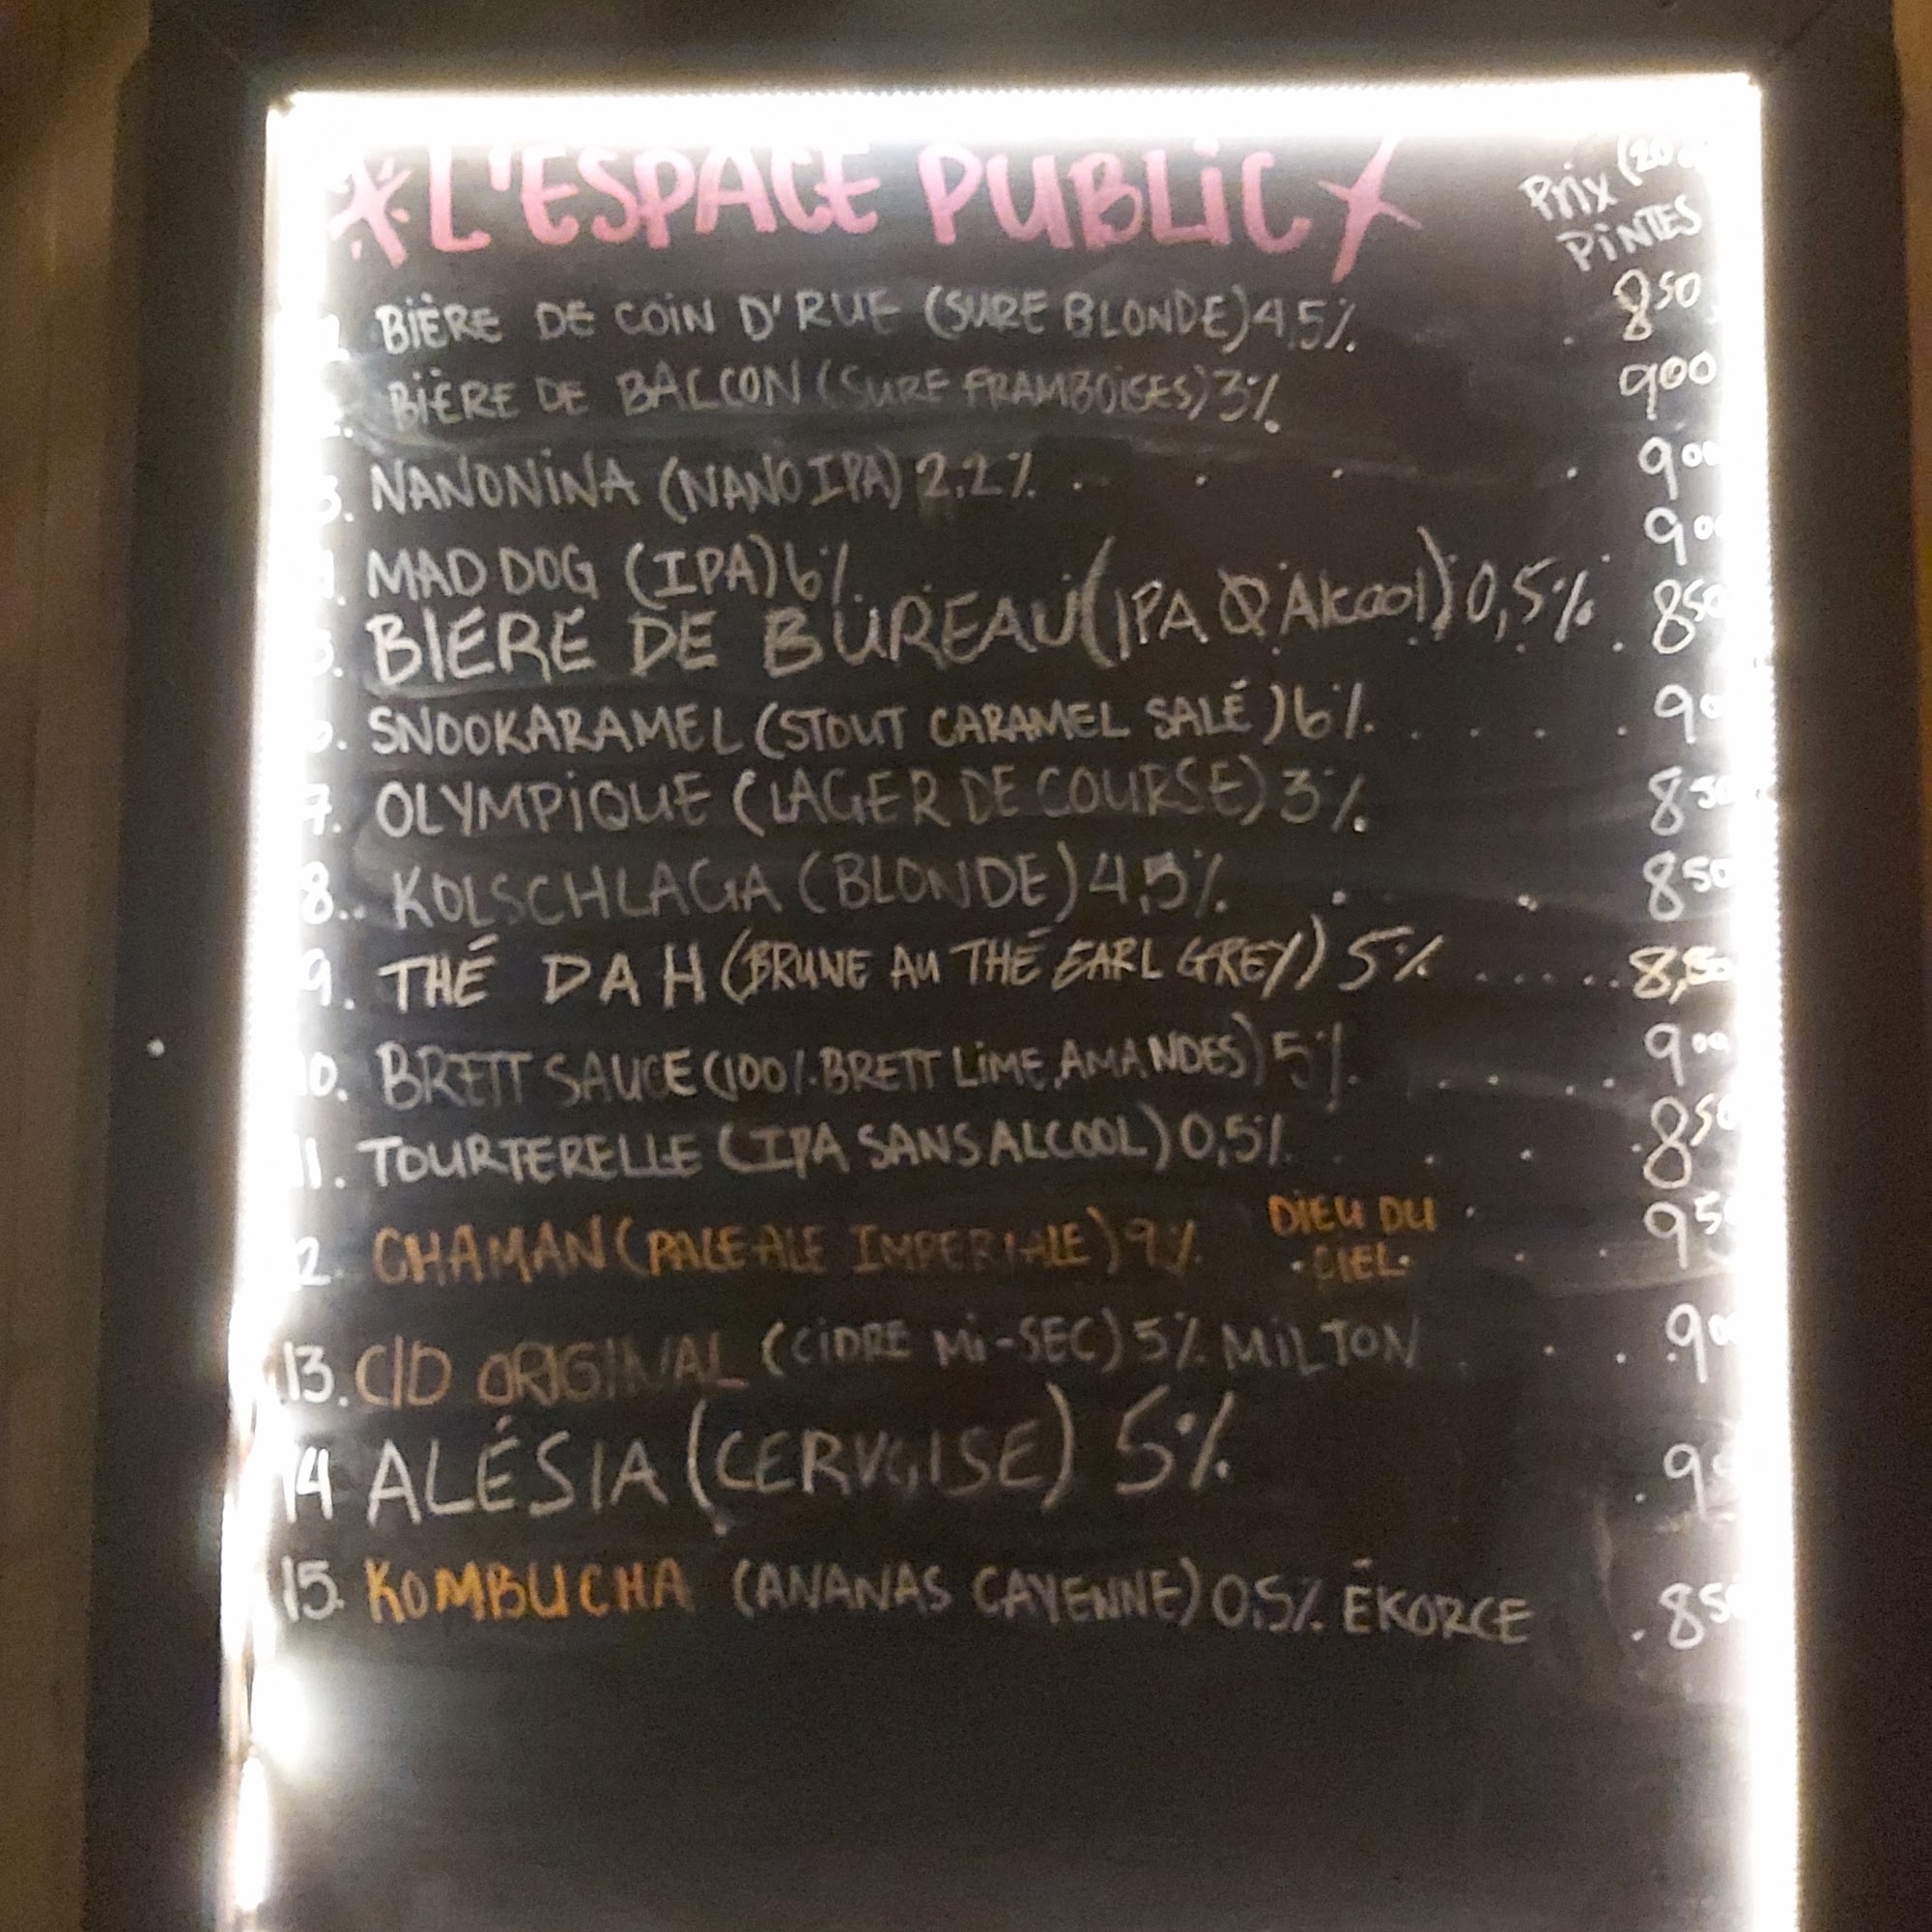 L'ESPACE PUBLIC
Prix (20
PINTES
BIÈRE DE COIN D'RUE (SURE BLONDE) 4,5% . 8⁵⁰
BIÈRE DE BALCON (SURE FRAMBOISES) 3% 9⁰⁰
3. NANONINA (NANO IPA) 2,2% . . . . 9⁰⁰
MAD DOG (IPA) 6% 9⁰⁰
BIÈRE DE BUREAU (IPA Ø Alcool) 0,5% . 8⁵⁰
6. SNOOKARAMEL (STOUT CARAMEL SALÉ) 6% . . . . . 9⁰
7. OLYMPIQUE (LAGER DE COURSE) 3% 8⁵⁰
8.. KOLSCHLAGA (BLONDE) 4,5% . . 8⁵⁰
9. THÉ DAH (BRUNE AU THÉ EARL GREY) 5% ...... 8,50
10. BRETT SAUCE (100% BRETT LIME, AMANDES) 5% .... 9⁰⁰
11. TOURTERELLE (IPA SANS ALCOOL) 0,5% . . . . 8⁵⁰
2. CHAMAN (PALE ALE IMPERIALE) 9% DIEU DU CIEL . . 9⁵⁰
13. CID ORIGINAL (CIDRE Mi-SEC) 5% MILTON . . . . 9⁰⁰
14 ALÉSIA (CERVOISE) 5% . 9⁵
15. KOMBUCHA (ANANAS CAYENNE) 0,5% ÉKORCE . 8⁵⁰